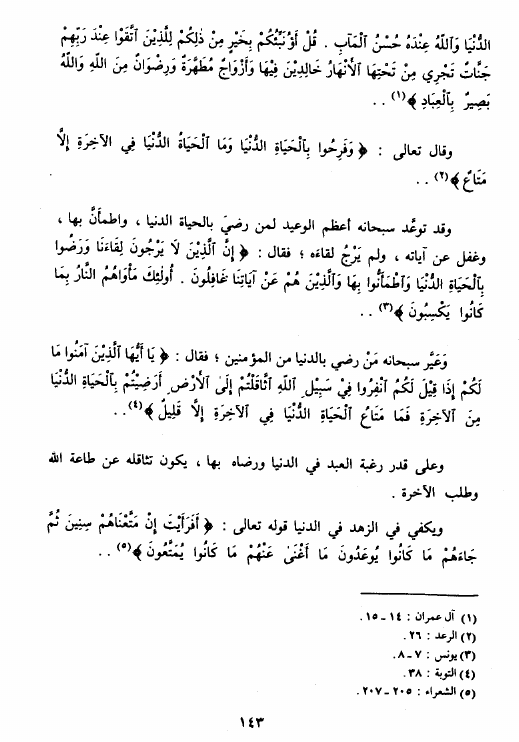 الدُّنْيَا وَٱللَّهُ عِنْدَهُ حُسْنُ ٱلْمَآبِ . قُلْ أَؤُنَبِّئُكُمْ بِخَيْرٍ مِنْ ذٰلِكُمْ لِلَّذِينَ ٱتَّقَوْا عِنْدَ رَبِّهِمْ
جَنَّاتٌ تَجْرِي مِنْ تَحْتِهَا ٱلْأَنْهَارُ خَالِدِينَ فِيهَا وَأَزْوَاجٌ مُطَهَّرَةٌ وَرِضْوَانٌ مِنَ ٱللَّهِ وَٱللَّهُ
بَصِيرٌ بِٱلْعِبَادِ ﴾(١) . .
وقال تعالى : ﴿ وَفَرِحُوا بِٱلْحَيَاةِ ٱلدُّنْيَا وَمَا ٱلْحَيَاةُ ٱلدُّنْيَا فِي ٱلآخِرَةِ إِلَّا
مَتَاعٌ ﴾(٢) . .
وقد توعَّد سبحانه أعظم الوعيد لمن رضيَ بالحياة الدنيا ، واطمأنَّ بها ،
وغفل عن آياته ، ولم يَرْجُ لقاءَه ؛ فقال : ﴿ إِنَّ ٱلَّذِينَ لَا يَرْجُونَ لِقَاءَنَا وَرَضُوا
بِٱلْحَيَاةِ ٱلدُّنْيَا وَٱطْمَأَنُّوا بِهَا وَٱلَّذِينَ هُمْ عَنْ آيَاتِنَا غَافِلُونَ . أُولٰئِكَ مَأْوَاهُمُ النَّارُ بِمَا
كَانُوا يَكْسِبُونَ ﴾(٣) . .
وَعَيَّر سبحانه مَنْ رضي بالدنيا من المؤمنين ؛ فقال : ﴿ يَا أَيُّهَا ٱلَّذِينَ آمَنُوا مَا
لَكُمْ إِذَا قِيْلَ لَكُمْ ٱنْفِرُوا فِيْ سَبِيْلِ ٱللَّهِ ٱثَّاقَلْتُمْ إِلَى ٱلْأَرْضِ أَرَضِيْتُمْ بِٱلْحَيَاةِ ٱلدُّنْيَا
مِنَ ٱلآخِرَةِ فَمَا مَتَاعُ ٱلْحَيَاةِ ٱلدُّنْيَا فِي ٱلآخِرَةِ إِلَّا قَلِيلٌ ﴾(٤) . .
وعلى قدر رغبة العبد في الدنيا ورضاه بها ، يكون تثاقله عن طاعة الله
وطلب الآخرة .
ويكفي في الزهد في الدنيا قوله تعالى : ﴿ أَفَرَأَيْتَ إِنْ مَتَّعْنَاهُمْ سِنِينَ ثُمَّ
جَاءَهُمْ مَا كَانُوا يُوعَدُونَ مَا أَغْنَىٰ عَنْهُمْ مَا كَانُوا يُمَتَّعُونَ ﴾(٥) . .
(١) آل عمران : ١٤ ـ ١٥ .
(٢) الرعد : ٢٦ .
(٣) يونس : ٧ ـ ٨ .
(٤) التوبة : ٣٨ .
(٥) الشعراء : ٢٠٥ ـ ٢٠٧ .
١٤٣